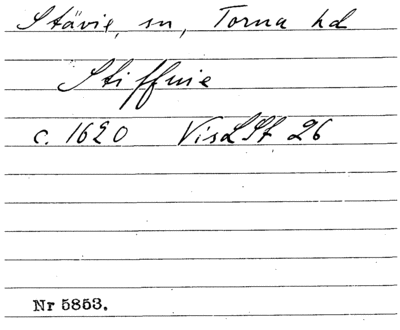 Stävie, sn, Torna hd
Stiffuie
c. 1620 VisLSt 26
Nr 5853.